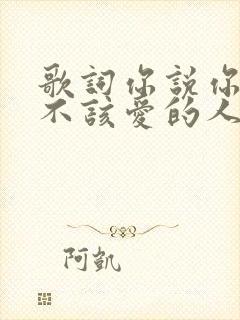 歌詞你説你
不該愛的人
阿凱